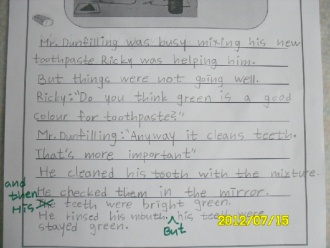 Mr. Dunfilling was busy mixing his new
toothpaste Ricky was helping him.
But things were not going well.
Ricky:"Do you think green is a good
colour for toothpastes"
Mr. Dunfilling:"Anyway it cleans teeth.
That's more important"
He cleaned his tooth with the mixture.
and
then
He checked them in the mirror.
His teeth were bright green.
He rinsed his mouth. his teeth were
But
stayed green.
2012/07/15